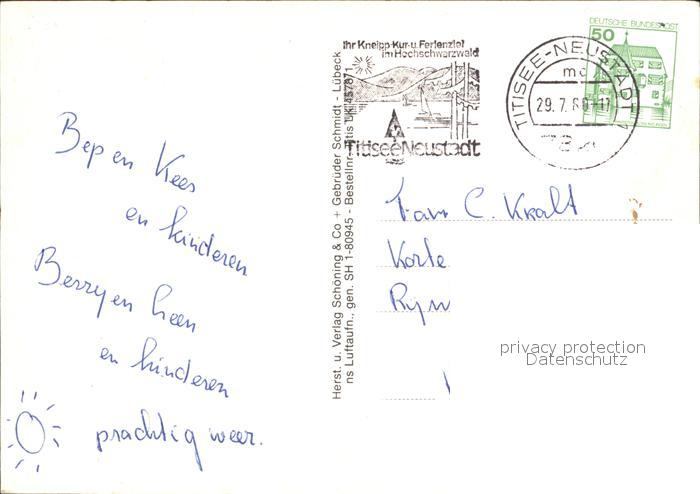 Bep en Kees
en kinderen
Berry en heen
en kinderen
prachtig weer.
Herst. u. Verlag Schöning & Co + Gebrüder Schmidt - Lübeck
ns Luftaufn., gen. SH 1-80945 - Bestellnr.
Ihr Kneipp-Kur-u. Ferienziel
im Hochschwarzwald
Titisee-Neustadt
TITISEE-NEUSTADT 1
mc
29.7.80-17
DEUTSCHE BUNDESPOST
50
Fam C. Kralt
Korte
Ryn
privacy protection
Datenschutz